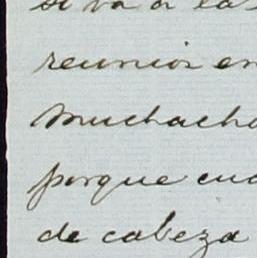 si va a las
reunion en
muchacho
porque cua
de cabeza